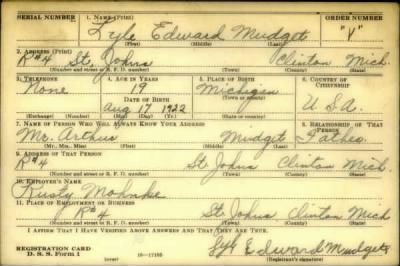 SERIAL NUMBER 1. NAME (Print) ORDER NUMBER
Lyle Edward Mudget "V"
(First) (Middle) (Last)
2. ADDRESS (Print)
R#4 St. Johns Clinton Mich.
(Number and street or R. F. D. number) (Town) (County) (State)
3. TELEPHONE 4. AGE IN YEARS 5. PLACE OF BIRTH 6. COUNTRY OF CITIZENSHIP
None 19 Michigan U.S.A.
DATE OF BIRTH
Aug 17 1922
(Exchange) (Number) (Mo.) (Day) (Yr.) (State or country)
7. NAME OF PERSON WHO WILL ALWAYS KNOW YOUR ADDRESS 8. RELATIONSHIP OF THAT PERSON
Mr. Arthur Mudget Father
(Mr., Mrs., Miss) (First) (Middle) (Last)
9. ADDRESS OF THAT PERSON
R#4 St. Johns Clinton Mich.
(Number and street or R. F. D. number) (Town) (County) (State)
10. EMPLOYER'S NAME
Rusty Mohnke
11. PLACE OF EMPLOYMENT OR BUSINESS
R#4 St. Johns Clinton Mich
(Number and street or R. F. D. number) (Town) (County) (State)
I AFFIRM THAT I HAVE VERIFIED ABOVE ANSWERS AND THAT THEY ARE TRUE.
REGISTRATION CARD
D. S. S. Form 1 16—17105 Lyle Edward Mudget
(Registrant's signature)